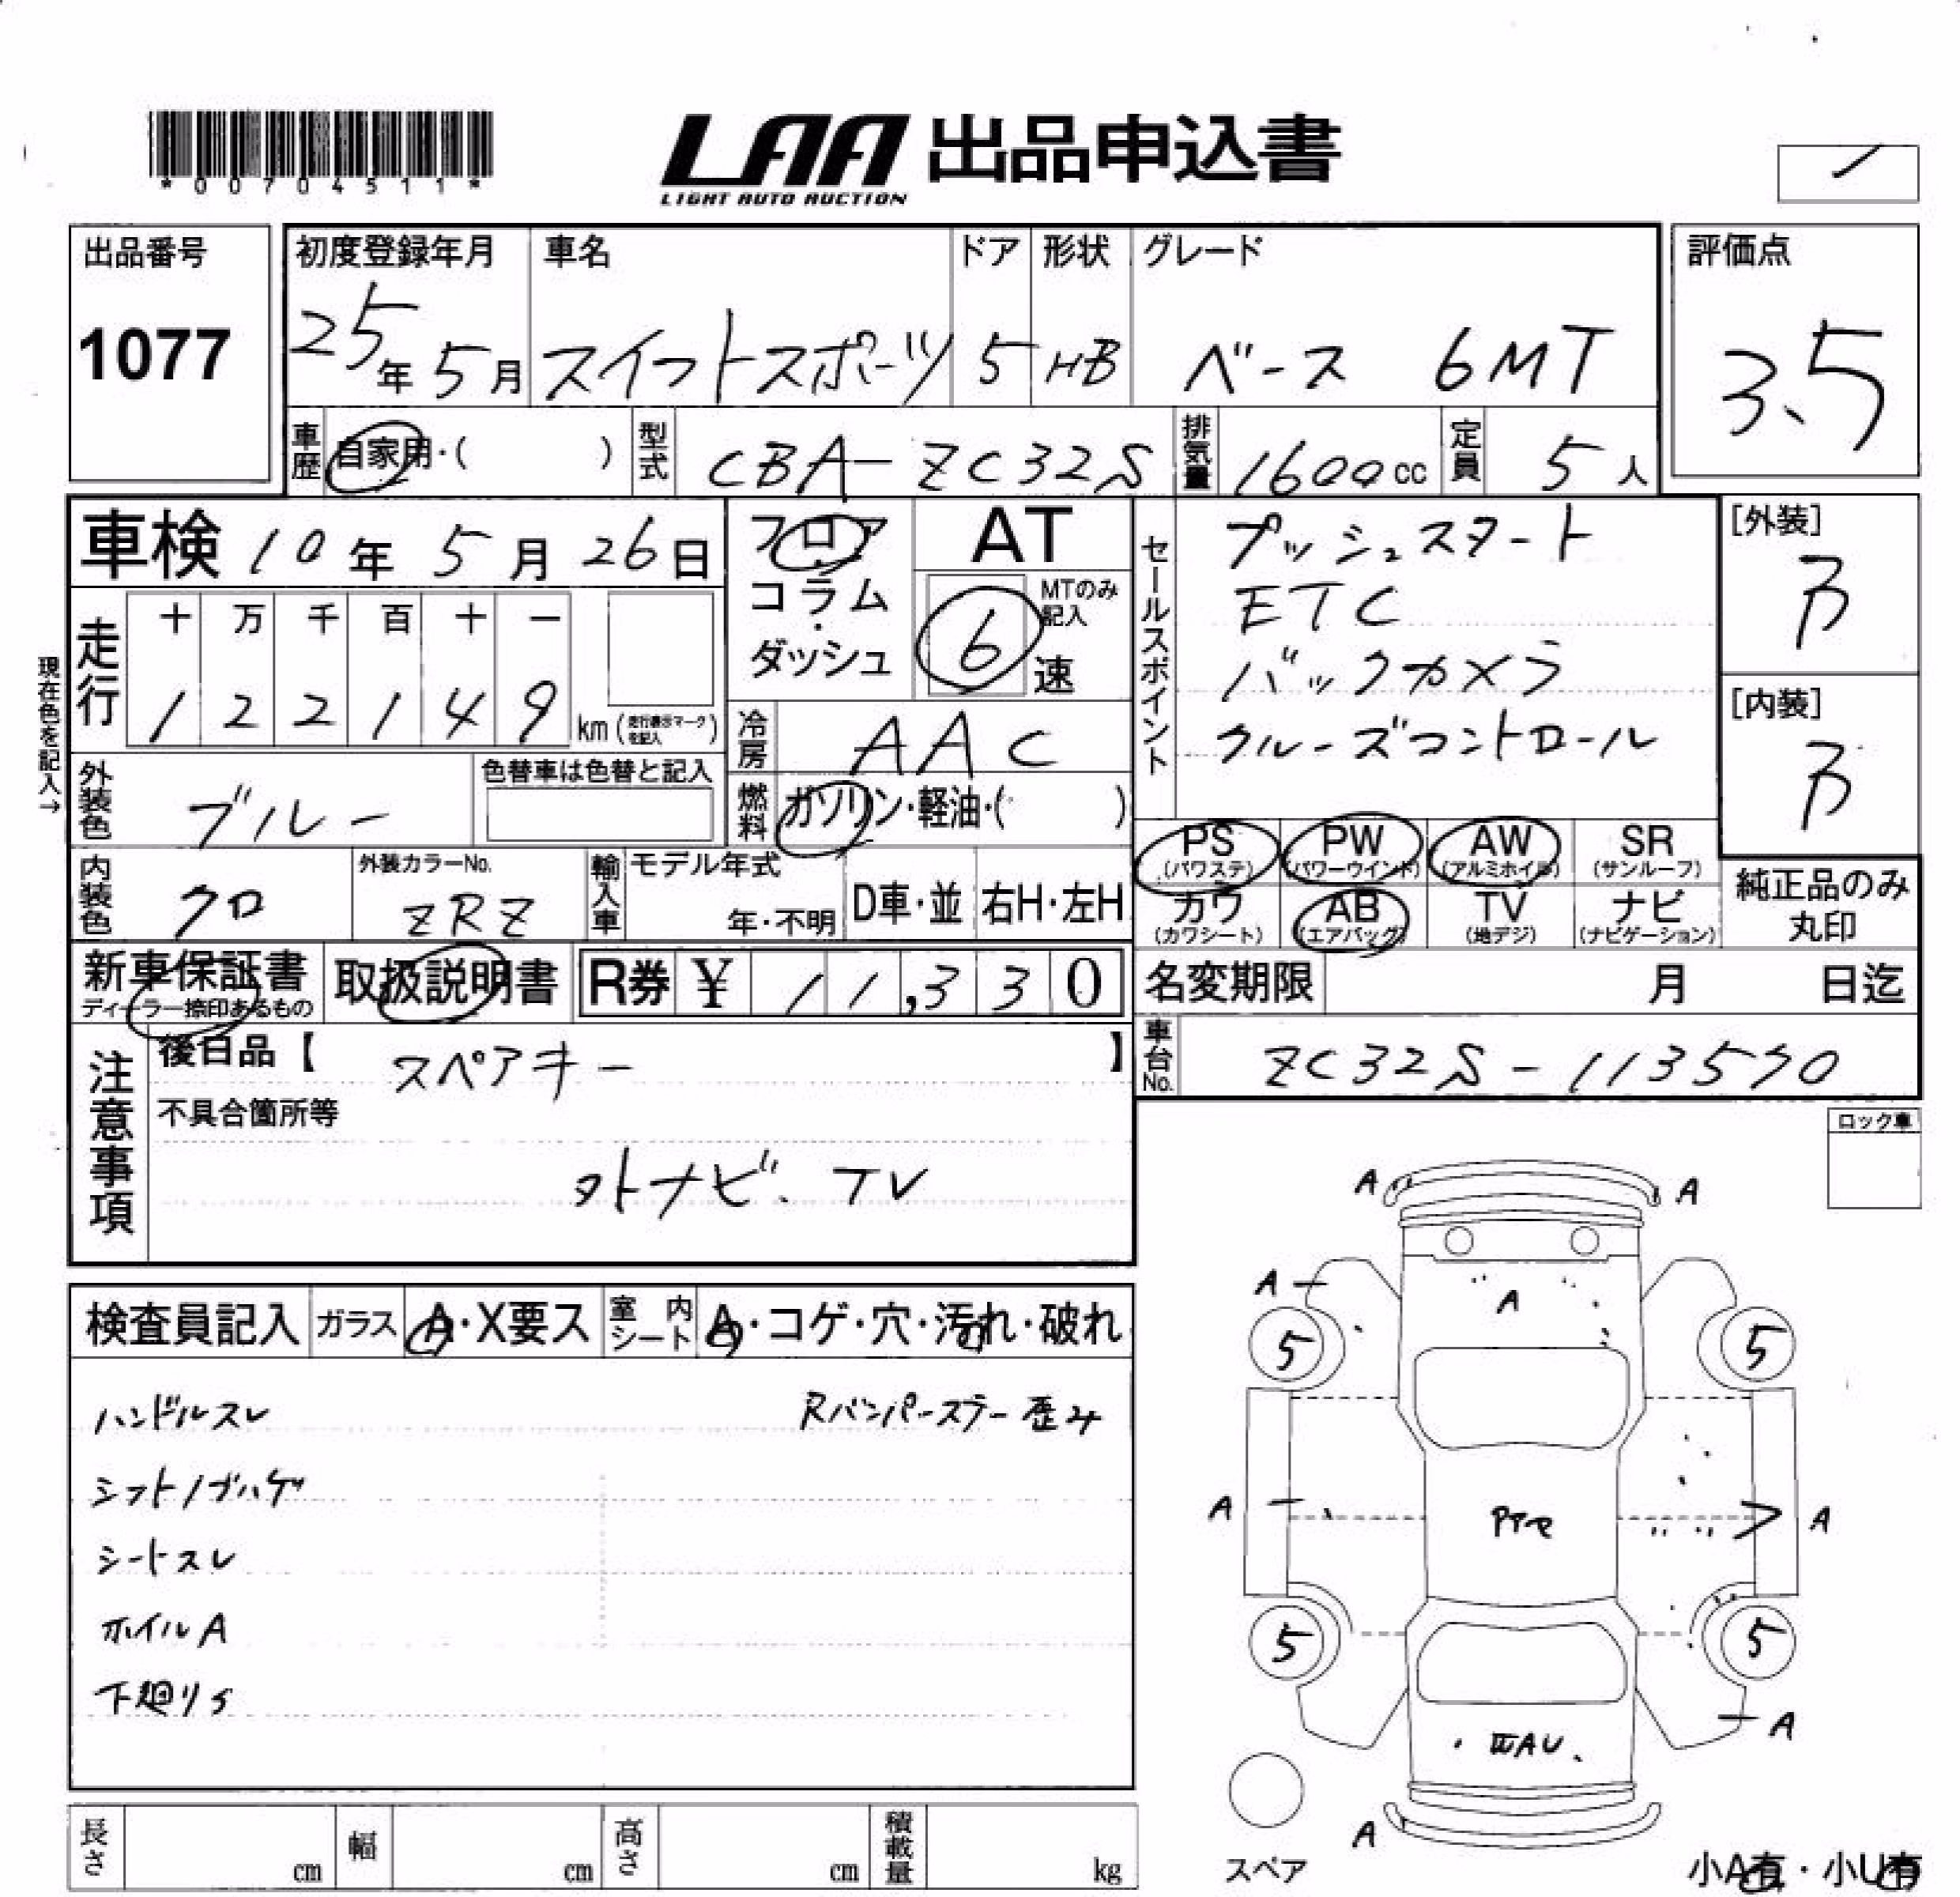 *00704511*
LAA 出品申込書
LIGHT AUTO AUCTION
出品番号
1077
初度登録年月
25年 5月
車名
スイフトスポーツ
ドア
5
形状
HB
グレード
ベース 6MT
評価点
3.5
車歴 自家用・( )
型式 CBA-ZC32S
排気量 1600cc
定員 5人
車検 10年 5月 26日
走行
十 万 千 百 十 一
1 2 2 1 4 9 km (走行表示マークを記入)
現在色を記入→
フロア
コラム
・
ダッシュ
AT
6速
MTのみ記入
冷房 AAC
燃料 ガソリン・軽油・( )
セールスポイント
プッシュスタート
ETC
バックカメラ
クルーズコントロール
[外装]
B
[内装]
B
外装色 ブルー
色替車は色替と記入
内装色 クロ
外装カラーNo.
ZRZ
輸入車
モデル年式
年・不明
D車・並
右H・左H
PS (パワステ)
PW (パワーウインド)
AW (アルミホイル)
SR (サンルーフ)
カワ (カワシート)
AB (エアバッグ)
TV (地デジ)
ナビ (ナビゲーション)
純正品のみ
丸印
新車保証書
ディーラー捺印あるもの
取扱説明書
R券 ¥ 11,330
名変期限 月 日迄
車台No. ZC32S-113570
注意事項
後日品【 スペアキー 】
不具合箇所等
外ナビ.TV
ロック車
検査員記入
ガラス A・X要ス
室内シート A・コゲ・穴・汚れ・破れ
ハンドルスレ
Rバンパースラー歪み
シフトノブハゲ
シートスレ
ホイルA
下廻りS
A A
A A
5 5
A A
5 5
A
A
スペア
小A有・小U有
長さ cm
幅 cm
高さ cm
積載量 kg